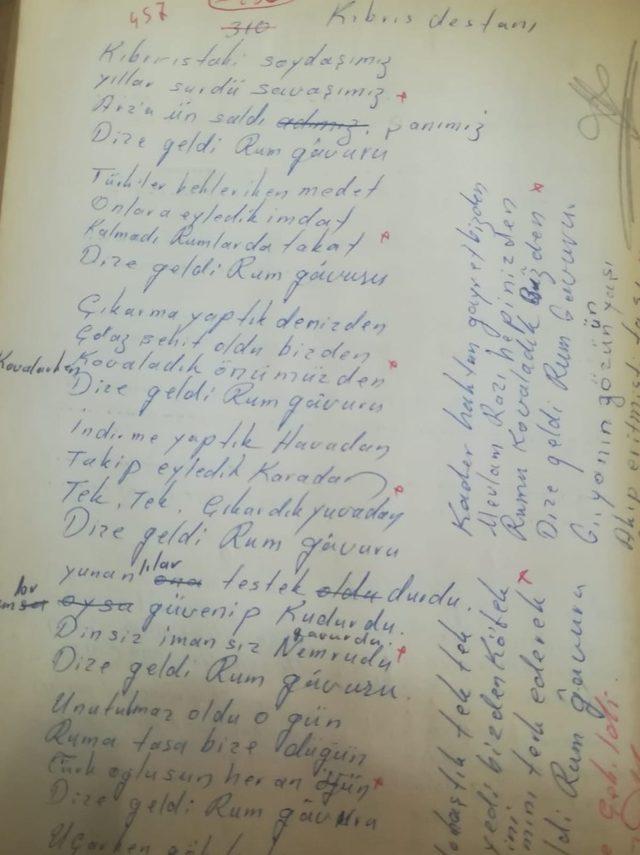 457
310
Kıbrıs destanı
Kıbrıstaki soydaşımız
yıllar sürdü savaşımız
Arz'a ün saldı adımız, şanımız
Dize geldi Rum gâvuru
Türkiler beklerken medet
Onlara eyledik imdat
Kalmadı Rumlarda takat
Dize geldi Rum gâvuru
Çıkarma yaptık denizden
şehit oldu bizden
Kovalarken Kovaladık önümüzden
Dize geldi Rum gâvuru
İndirme yaptık Havadan
Takip eyledik Karadan
Tek, Tek, Çıkardık yuvadan
Dize geldi Rum gâvuru
yunanlılar ona testek oldu durdu.
oysa güvenip Kudurdu.
Dinsiz iman sız Nemrudu gavurdu
Dize geldi Rum gâvuru
Unutulmaz oldu o gün
Ruma tasa bize düğün
Türk oğlusun her an öğün
Dize geldi Rum gâvuru
Kader haktan gayret bizden
Mevlam Razı hepinizden
Rumu Kovaladık Bizden
Dize geldi Rum Gavuru.
gözün yaşı
tek tek
yedi bizden Kötek
terk ederek
Rum gâvuru